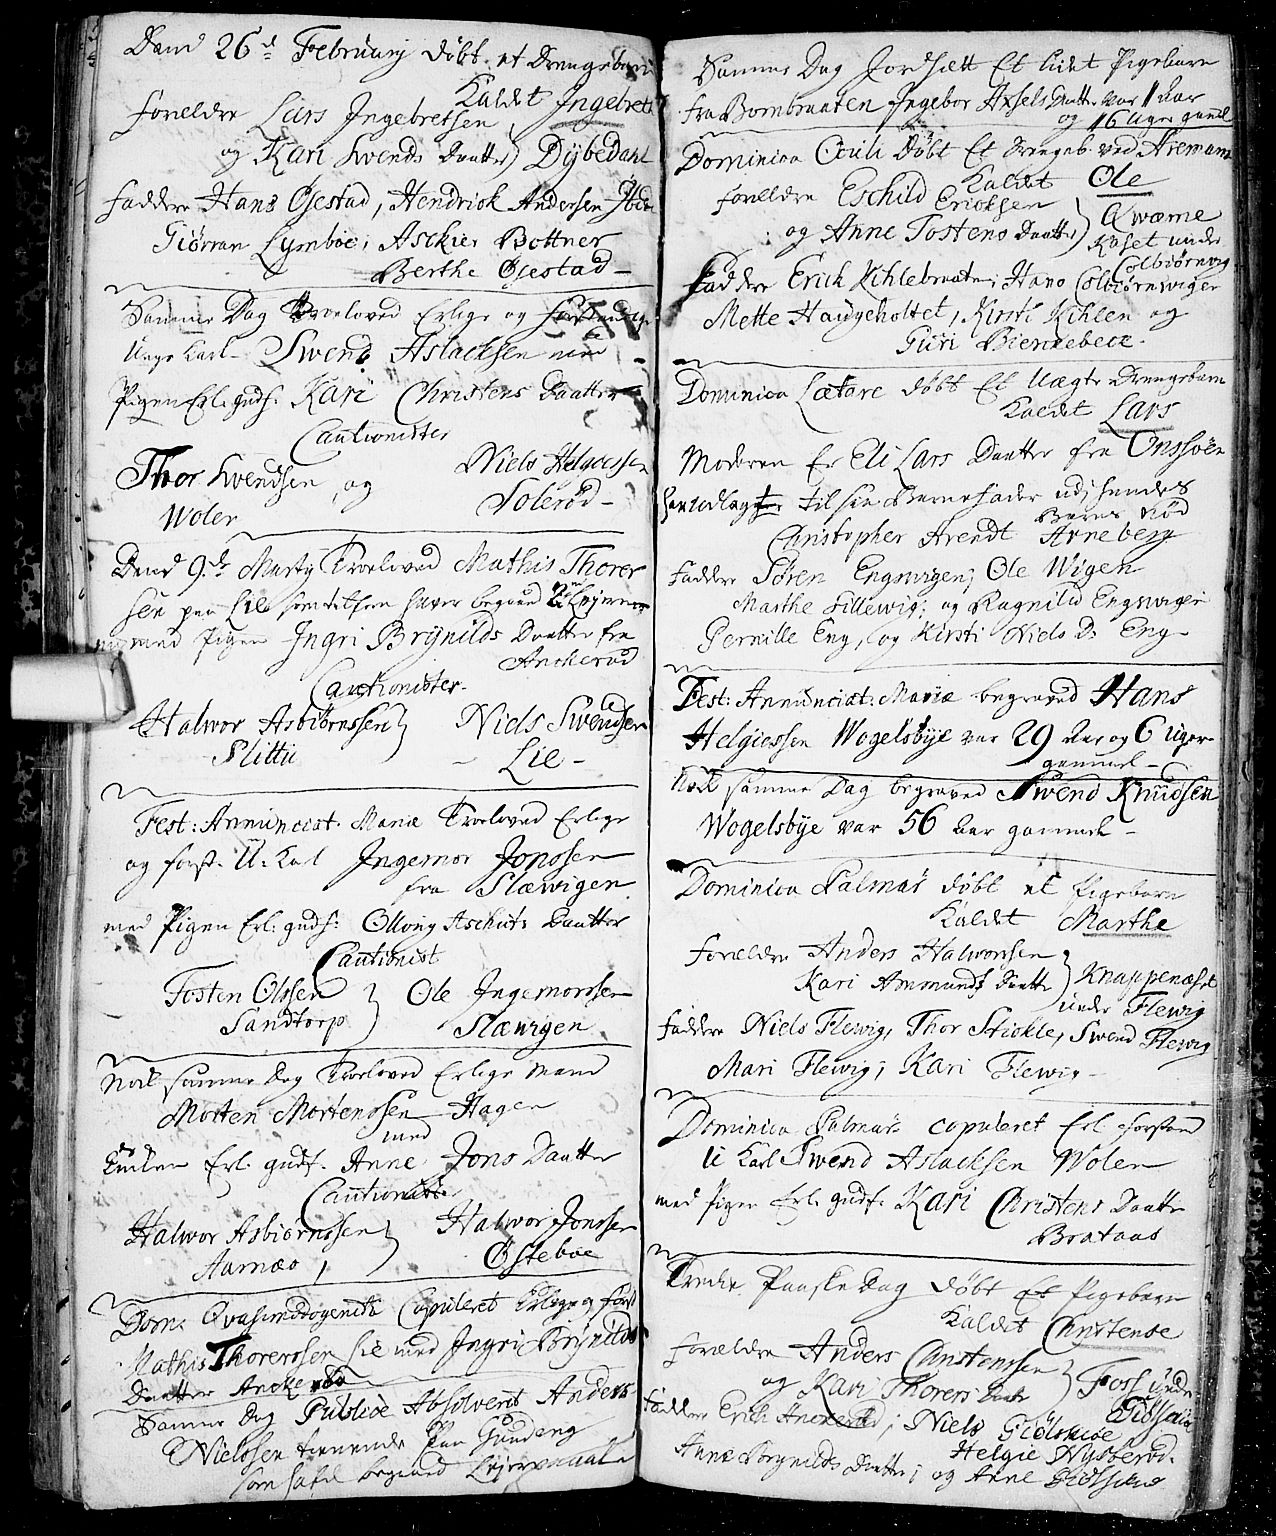 Dend 26d Februarij døbt et Drengebarn
Kaldet Ingebret
Forældre Lars Ingebretsen
og Kari Svends Daatter) Dÿbedahl
Faddere Hans Øjestad, Hendrick Andersen
Giørran Lymboe; Asckier Bottner
Berthe Øjestad
Samme Dag Troeloved Erlige og
Unge Karl Swend Aslacksen med
Pigen Erl: gudf: Kari Christens Daatter
Cautionister
Thor Svendsen og
Woler
Niels Helgessen
Solerød
Dend 9de Martij Troeloved Mathis Thorer
sen paa Lie som tilforn haver begaaed
med Pigen Ingri Brÿnilds Daatter fra
Anckerød
Cautionister
Halwor Asbiørnssen} Niels Swendsen
Slittu Lie
Fest: Annunciat. Mariæ Troeloved Erlige
og forst. U. Karl Ingemor Jonssen
fra Slæwigen
med Pigen Erl: gudf: Ollong Aschuts Daatter
Cautionist
Tosten Olssen } Ole Ingemorssen
Sandtorp Slæwigen
Nock samme Dag Troeloved Erlige Mand
Morten Mortenssen Hagen
med
Enken Erl. gudf. Anne Jons Daatter
Cautionister
Halwor Asbiornssen } Halwor Jonssen
Aarnæs, Østeboe
Dom: Qvasimodogeniti Copuleret Erlige og forst
Mathis Thorerssen Lie med Ingri Brÿnilds
Daatter Anckerød
Samme Dag Publice Absolveret Anders
Nielssen tienende Paa Gunderg
som hafd begaaed Leyermaal
Samme Dag Jordsatt Et lidet Pigebarn
fra Bornbraaten Ingebor Axels Daatter var 1 aar
og 16 Uger gaml
Dominica Oculi Døbt Et Drengeb. ved Aremark
Kaldet Ole
Forældre Eschild Ericksen
og Anne Tostens Daatter} Qwærne
Plaset under
Colbiørnvig
Faddere Erich Kihlebraaten; Hans Colbiørnwigen
Mette Haugeholtet, Kirsti Kihlen og
Guri Bierckebeck.
Dominica Lætare døbt Et Uægte Drengebarn
Kaldet Lars
Moderen Er Eli Lars Daatter fra Onssøen
har udlagt til sin Barnefader udj hendes
Barns Nød
Christopher Arendt Arneberg
Faddere Søren Engswigen; Ole Wigen
Marthe Tillewig; og Ragnild Engswigen
Pernille Eng, og Kirsti Niels D. Eng
Fest: Annunciat: Mariæ begraved Hans
Helgiessen Wogelsbÿe var 29 Aar og 6 uger
gammel
Nock samme Dag begraved Swend Knudsen
Wogelsbÿe var 56 aar gammel
Dominica Palmar døbt et Pigebarn
Kaldet Marthe
Forældre Anders Halworsen
Kari Ammunds Daatter } Knappenæset
under Flewig
Faddere Niels Flewig, Thor Stickle, Swend Flewig
Mari Flewig; Kari Flewig
Dominica Palmar: copuleret Erl. forstand
U Karl Swend Aslacksen Woler
med Pigen Erl. gudf. Kari Christens Daatter
Brataas
Tredie Paaske Dag døbt Et Pigebarn
Kaldet Christense
Forældre Anders Christenssen
og Kari Thorers Daatt } Foss under
Faddere Erich Anckerød; Niels Giølstioe
Helgie Nysberød.
Anne Brynilds Daatter; og Anne